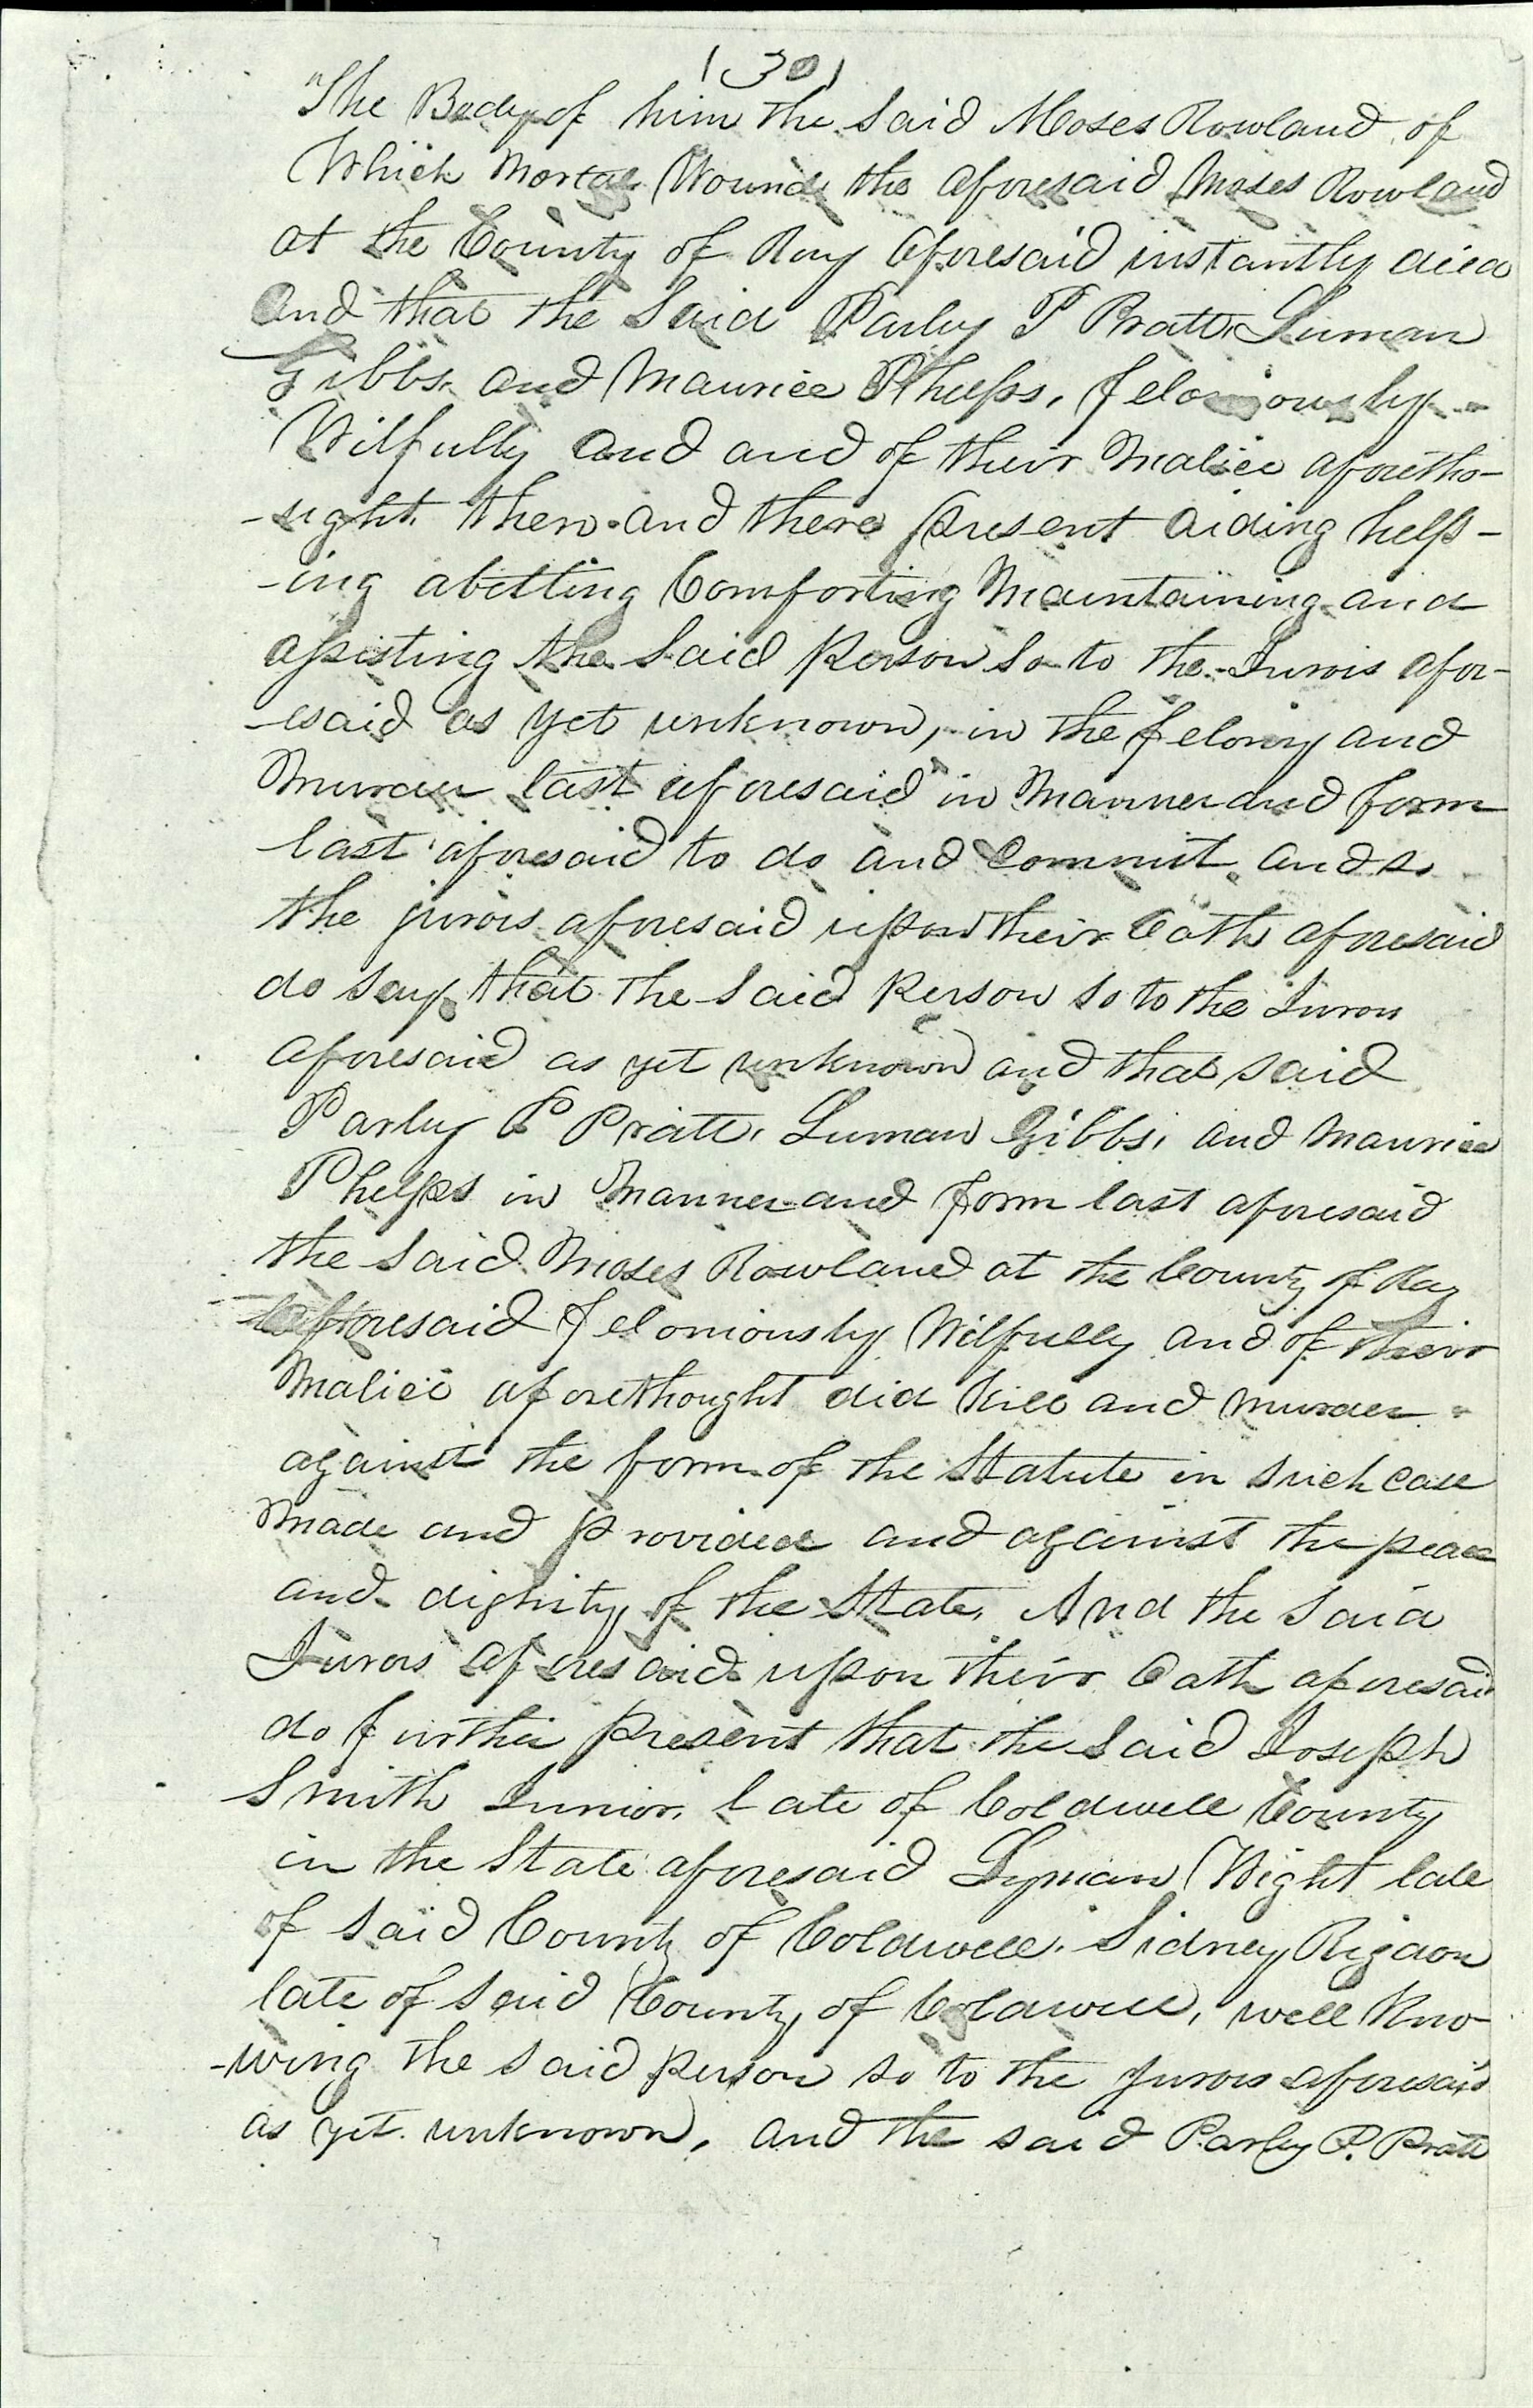 (30)
"The Body of him the said Moses Rowland of
Which Mortal Wound the aforesaid Moses Rowland
at the County of Ray aforesaid instantly died
And that the Said Parley P Pratt Luman
Gibbs and Maurice Phelps, feloniously
Wilfully and and of their Malice afoetho-
-ught then and there present aiding help-
-ing abetting Comforting Maintaining and
assisting the Said Person So to the Jurors afor-
-esaid as yet unknown, in the felony and
Murder last aforesaid in Manner and form
last aforesaid to do and Commit and so
the jurors aforesaid upon their Oath aforesaid
do say that the said Person so to the Jurors
aforesaid as yet unknown and that said
Parley P Pratt, Luman Gibbs, and Maurice
Phelps in Manner and form last aforesaid
the said Moses Rowland at the County of Ray
aforesaid feloniously Wilfully and of their
Malice aforethought did kill and murder
against the form of the Statute in such case
Made and Provided and against the peace
and dignity of the State, And the Said
Jurors aforesaid upon their Oath aforesaid
do further present that the said Joseph
Smith Junior, late of Coldwell County
in the State aforesaid Lyman Wight late
of said County of Coldwell. Sidney Rigdon
late of said County of Coldwell, well Kno-
-wing the said person so to the jurors aforesaid
as yet unknown, and the said Parley P. Pratt